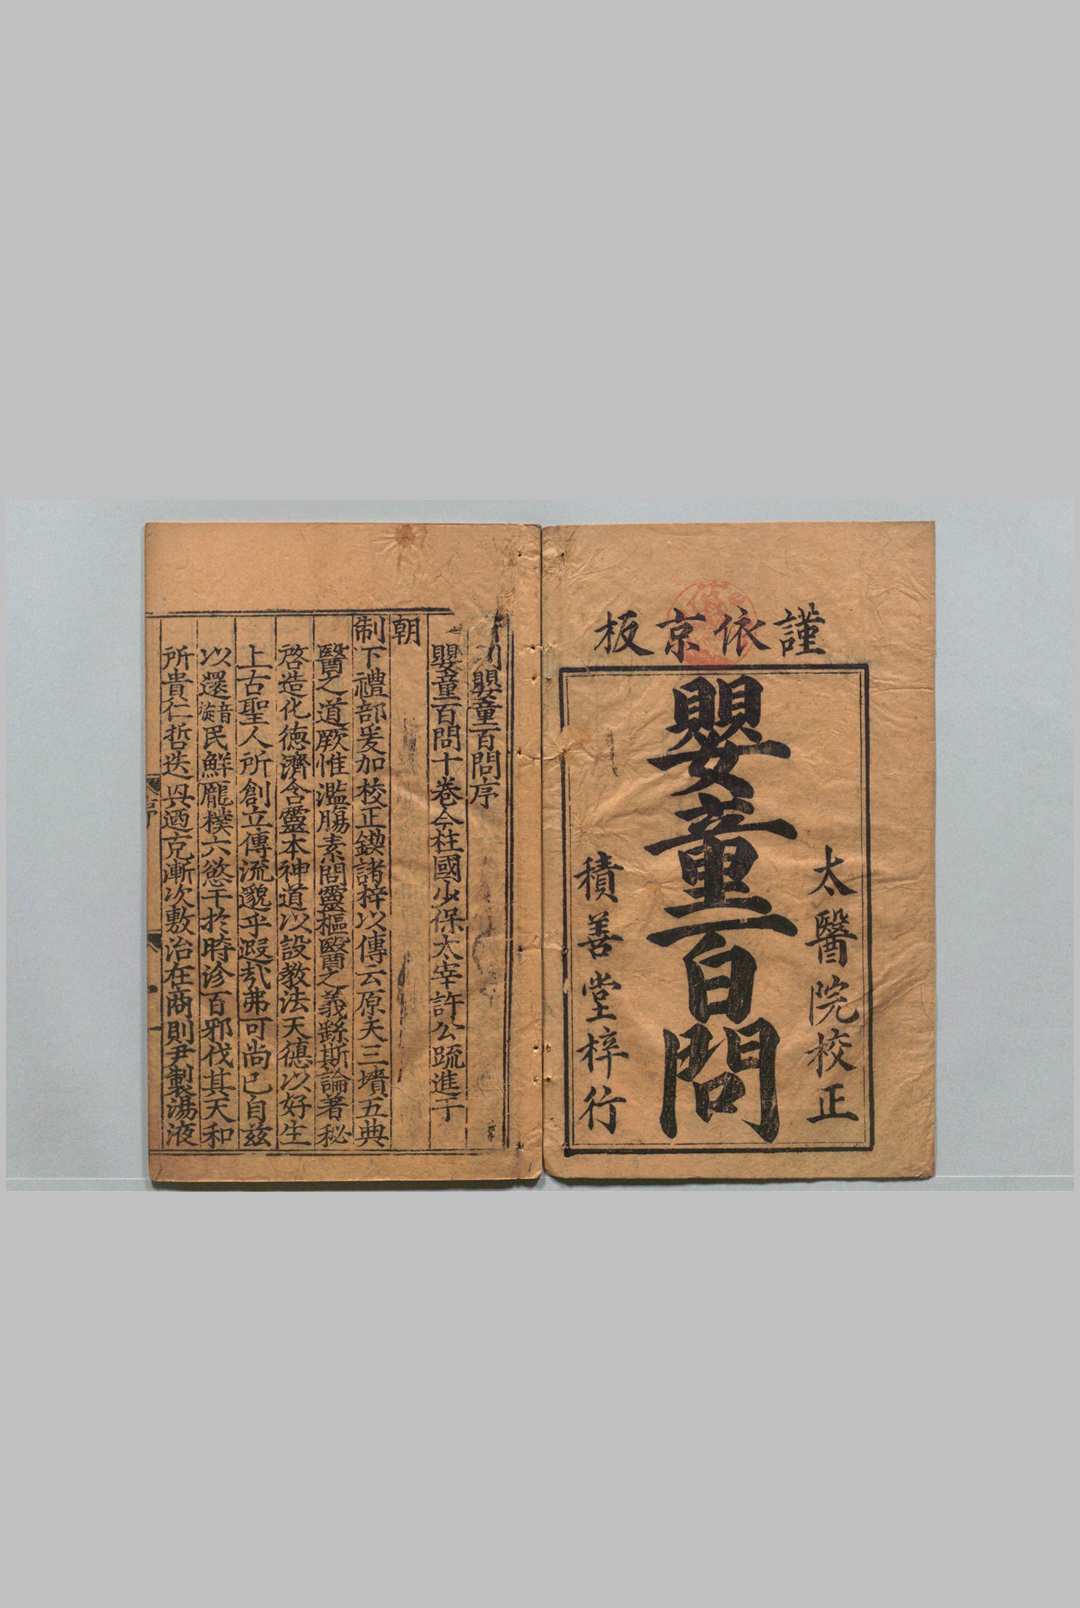 謹依京板
太醫院校正
嬰童百問
積善堂梓行
嬰童百問序
嬰童百問十卷今柱國少保太宰許公疏進于
朝
制下禮部爰加校正鍥諸梓以傳云原夫三墳五典
醫之道厥惟濫觴素問靈樞醫之義繇斯論著秘
啓造化德濟含靈本神道以設教法天德以好生
上古聖人所創立傳流邈乎遐哉弗可尚已自茲
以還民鮮厖樸六慾干於時沴百邪伐其天和
所貴仁哲迭興迺克漸次敷治在商則尹製湯液